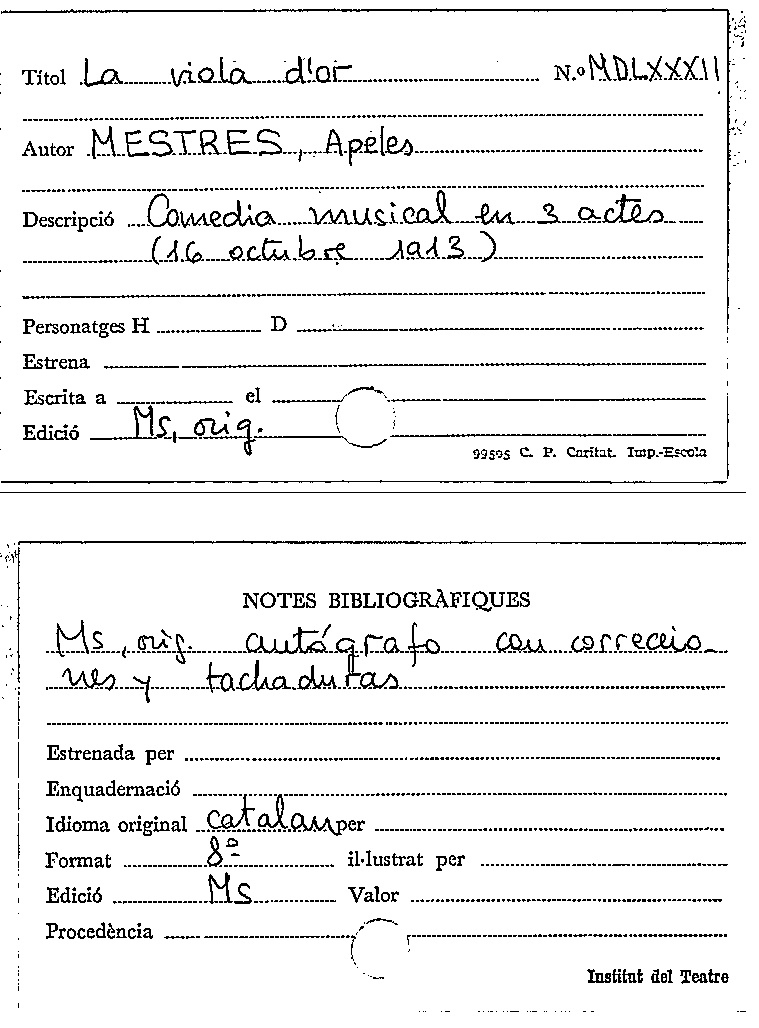 Títol La viola d'or N.º MDLXXXII
Autor MESTRES, Apeles
Descripció Comedia musical en 3 actes
(16 octubre 1913)
Personatges H D
Estrena
Escrita a el
Edició Ms, orig.
99505 C. P. Caritat. Imp.-Escola
NOTES BIBLIOGRÀFIQUES
Ms, orig. autógrafo con correccio-
nes y tachaduras
Estrenada per
Enquadernació
Idioma original catalan per
Format 8º il·lustrat per
Edició Ms Valor
Procedència
Institut del Teatre